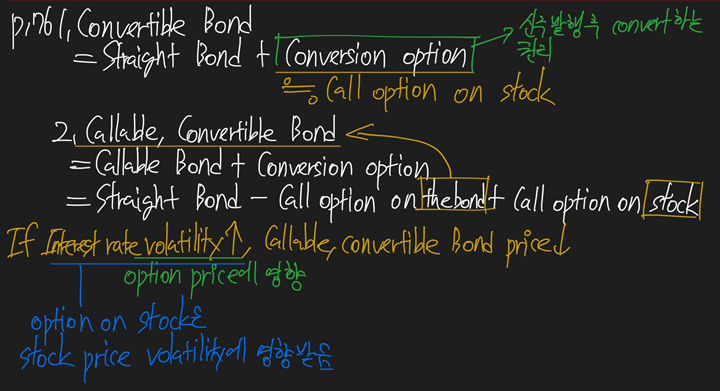 p.761. Convertible Bond
= Straight Bond + Conversion option
신주발행후 convert하는
권리
≒ Call option on stock
2. Callable, Convertible Bond
= Callable Bond + Conversion option
= Straight Bond - Call option on the bond + Call option on stock
If Interest rate volatility↑, Callable, convertible Bond price↓
option price에 영향
option on stock은
stock price volatility에 영향받음